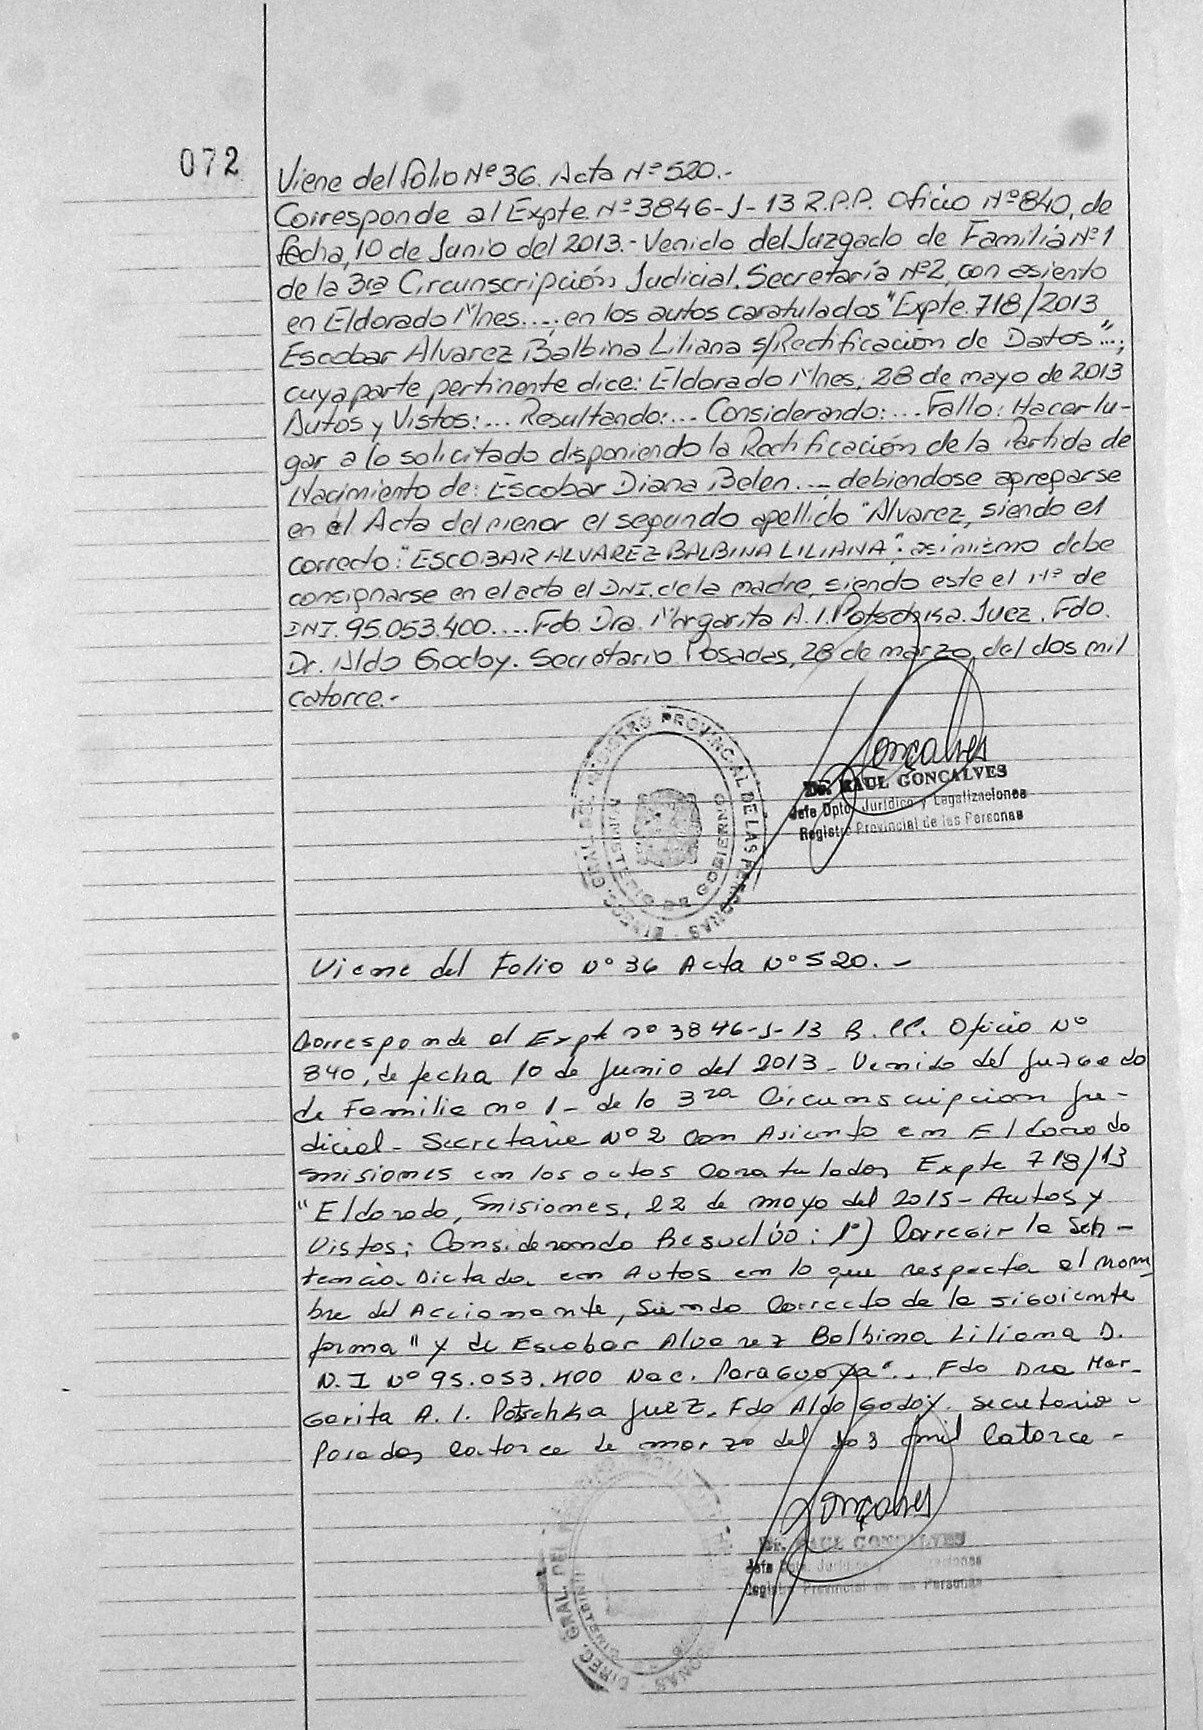 072
Viene del folio Nº 36. Acta Nº 520.-
Corresponde al Expte. Nº 3846-J-13 R.P.P. Oficio Nº 840, de
fecha, 10 de Junio del 2013.- Venido del Juzgado de Familia Nº 1
de la 3ra Circunscripción Judicial. Secretaría Nº 2, con asiento
en Eldorado Mnes...; en los autos caratulados "Expte. 718/2013
Escobar Alvarez Balbina Liliana s/Rectificacion de Datos"...;
cuya parte pertinente dice: Eldorado Mnes, 28 de mayo de 2013
Autos y Vistos:... Resultando:... Considerando:... Fallo: Hacer lu-
gar a lo solicitado disponiendo la Rectificación de la Partida de
Nacimiento de: Escobar Diana Belen...- debiendose agregarse
en el Acta del menor el segundo apellido "Alvarez, siendo el
correcto: "ESCOBAR ALVAREZ BALBINA LILIANA"; asimismo debe
consignarse en el acta el DNI. de la madre, siendo este el Nº de
DNI. 95.053.400.... Fdo. Dra. Margarita A. I. Potschka. Juez. Fdo.
Dr. Aldo Godoy. Secretario Posadas, 28 de marzo del dos mil
catorce.-
Gonçalves
Dr. RAUL GONCALVES
Jefe Dpto. Jurídico y Legalizaciones
Registro Provincial de las Personas
DIREC. GRAL. DEL REGISTRO PROVINCIAL DE LAS PERSONAS
MINISTERIO DE GOBIERNO
Viene del Folio Nº 36 Acta Nº 520.-
Corresponde al Expte nº 3846-J-13 R.PP. Oficio Nº
840, de fecha 10 de Junio del 2013- Venido del Juzgado
de Familia nº 1- de la 3ra Circunscripcion Ju-
dicial- Secretaria Nº 2 con Asiento en Eldorado
misiones en los autos Caratulados Expte 718/13
"Eldorado, misiones, 22 de mayo del 2015- Autos y
Vistos; Considerando Resuelvo: 1º) Corregir la Sen-
tencia Dictada en Autos en lo que respecta al nom
bre del Accionante, Siendo Correcto de la siguiente
forma" y de Escobar Alvarez Balbina Liliana D.
N.I Nº 95.053.400 Nac. Paraguaya".. Fdo Dra Mar-
Garita A. I. Potschka Juez. Fdo Aldo Godoy. secretario-
Posadas catorce de marzo del dos mil Catorce-
Gonçalves
Dr. RAUL GONCALVES
Jefe Dpto. Jurídico y Legalizaciones
Registro Provincial de las Personas
DIREC. GRAL. DEL